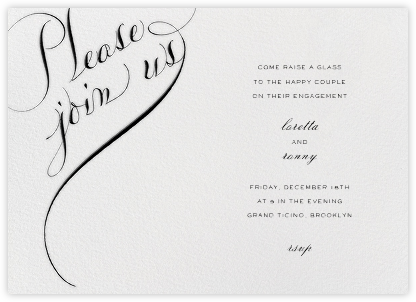 Please
join us
COME RAISE A GLASS
TO THE HAPPY COUPLE
ON THEIR ENGAGEMENT
loretta
AND
ronny
FRIDAY, DECEMBER 18TH
AT 5 IN THE EVENING
GRAND TICINO, BROOKLYN
rsvp